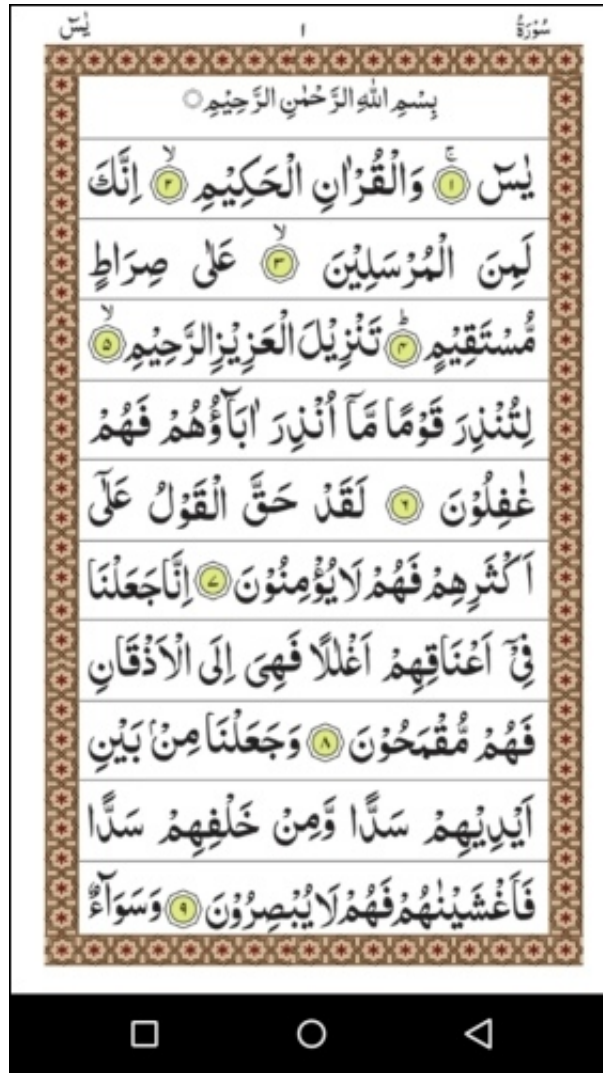 سُوْرَةُ ١ يٰسٓ
بِسْمِ اللّٰهِ الرَّحْمٰنِ الرَّحِيْمِ ○
يٰسٓ ۚ ﴿١﴾ وَالْقُرْاٰنِ الْحَكِيْمِ ۙ ﴿٢﴾ اِنَّكَ
لَمِنَ الْمُرْسَلِيْنَ ۙ ﴿٣﴾ عَلٰى صِرَاطٍ
مُّسْتَقِيْمٍ ؕ ﴿۴﴾ تَنْزِيْلَ الْعَزِيْزِ الرَّحِيْمِ ۙ ﴿۵﴾
لِتُنْذِرَ قَوْمًا مَّاۤ اُنْذِرَ اٰبَآؤُهُمْ فَهُمْ
غٰفِلُوْنَ ﴿۶﴾ لَقَدْ حَقَّ الْقَوْلُ عَلٰٓى
اَكْثَرِهِمْ فَهُمْ لَا يُؤْمِنُوْنَ ﴿۷﴾ اِنَّا جَعَلْنَا
فِيْۤ اَعْنَاقِهِمْ اَغْلٰلًا فَهِيَ اِلَى الْاَذْقَانِ
فَهُمْ مُّقْمَحُوْنَ ﴿۸﴾ وَجَعَلْنَا مِنْۢ بَيْنِ
اَيْدِيْهِمْ سَدًّا وَّمِنْ خَلْفِهِمْ سَدًّا
فَاَغْشَيْنٰهُمْ فَهُمْ لَا يُبْصِرُوْنَ ﴿۹﴾ وَسَوَآءٌ